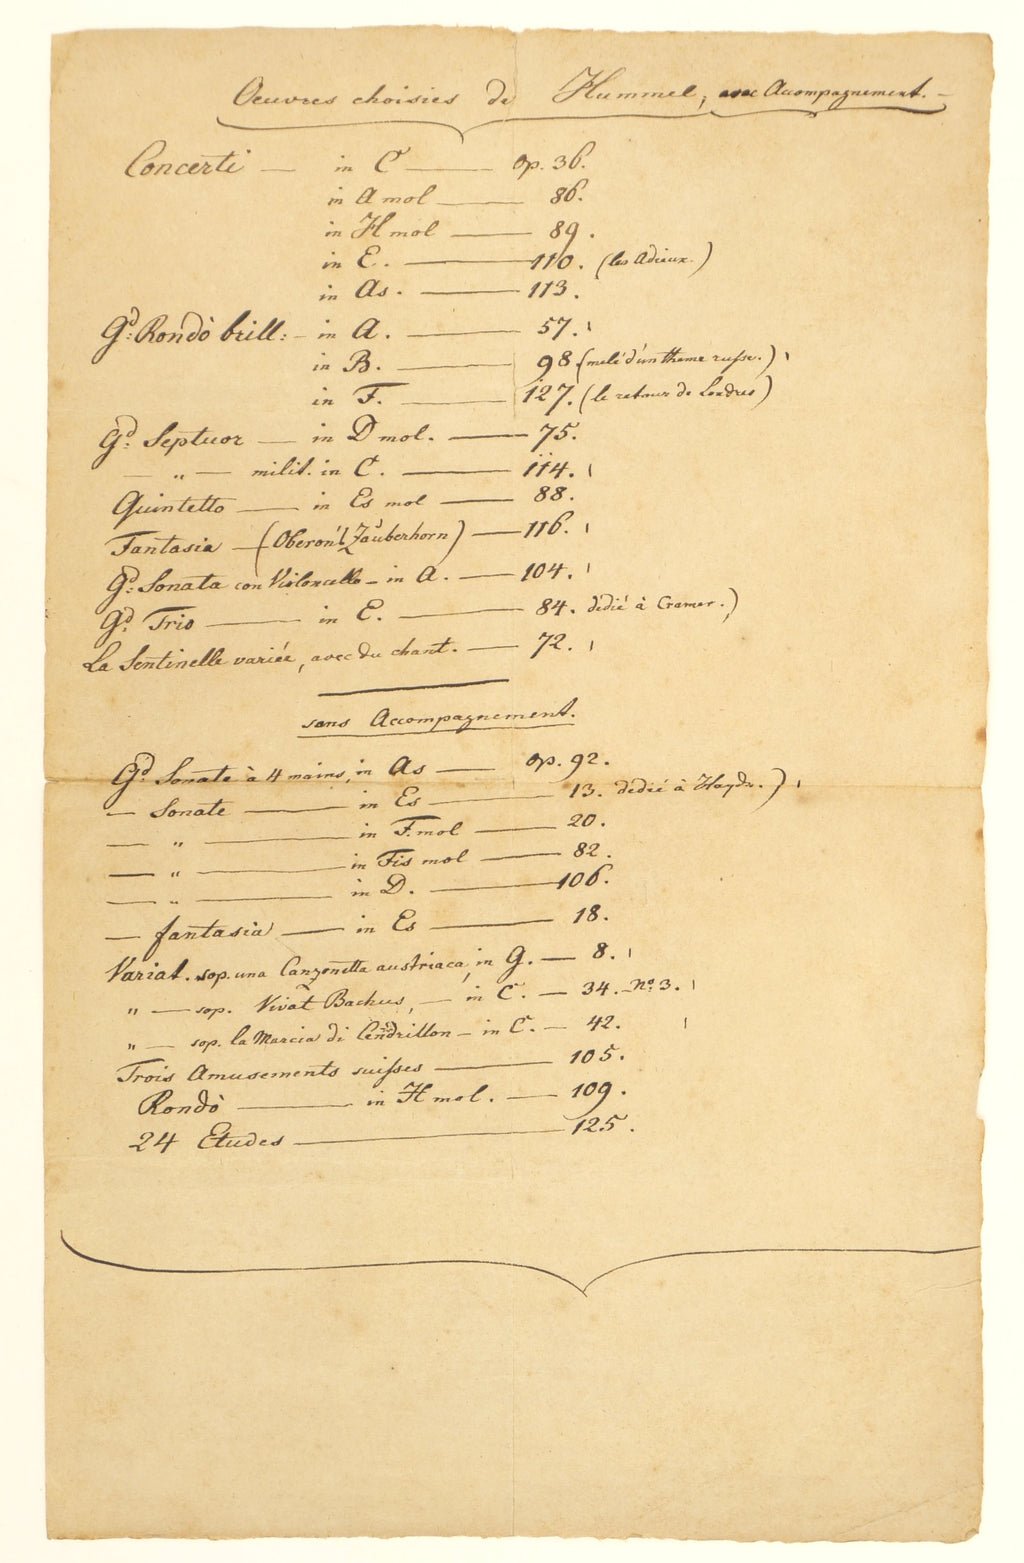 Oeuvres choisies de Hummel, avec Accompagnement. —
Concerti — in C — op. 36.
in A mol — 86.
in H mol — 89.
in E. — 110. (les Adieux.)
in As. — 113.
Gd: Rondò brill: — in A. — 57.
in B. — 98 (melé d'un theme russe.)
in F. — 127. (le retour de Londres)
Gd: Septuor — in D mol. — 75.
— „ — milit. in C. — 114.
Quintetto — in Es mol — 88.
Fantasia — (Oberon's Zauberhorn) — 116.
Gd: Sonata con Violoncello — in A. — 104.
Gd: Trio — in E. — 84. dédié à Cramer.)
La Sentinelle variée, avec du chant. — 72.
sans Accompagnement.
Gd: Sonate à 4 mains, in As — op. 92.
— Sonate — in Es — 13. dédié à Haydn.)
— „ — in F. mol — 20.
— „ — in Fis mol — 82.
— „ — in D. — 106.
— fantasia — in Es — 18.
Variat. sop. una Canzonetta austriaca, in G. — 8.
„ — sop. Vivat Bachus, — in C. — 34. No. 3.
„ — sop. la Marcia di Cendrillon — in C. — 42.
Trois Amusements suisses — 105.
Rondò — in H mol. — 109.
24 Etudes — 125.